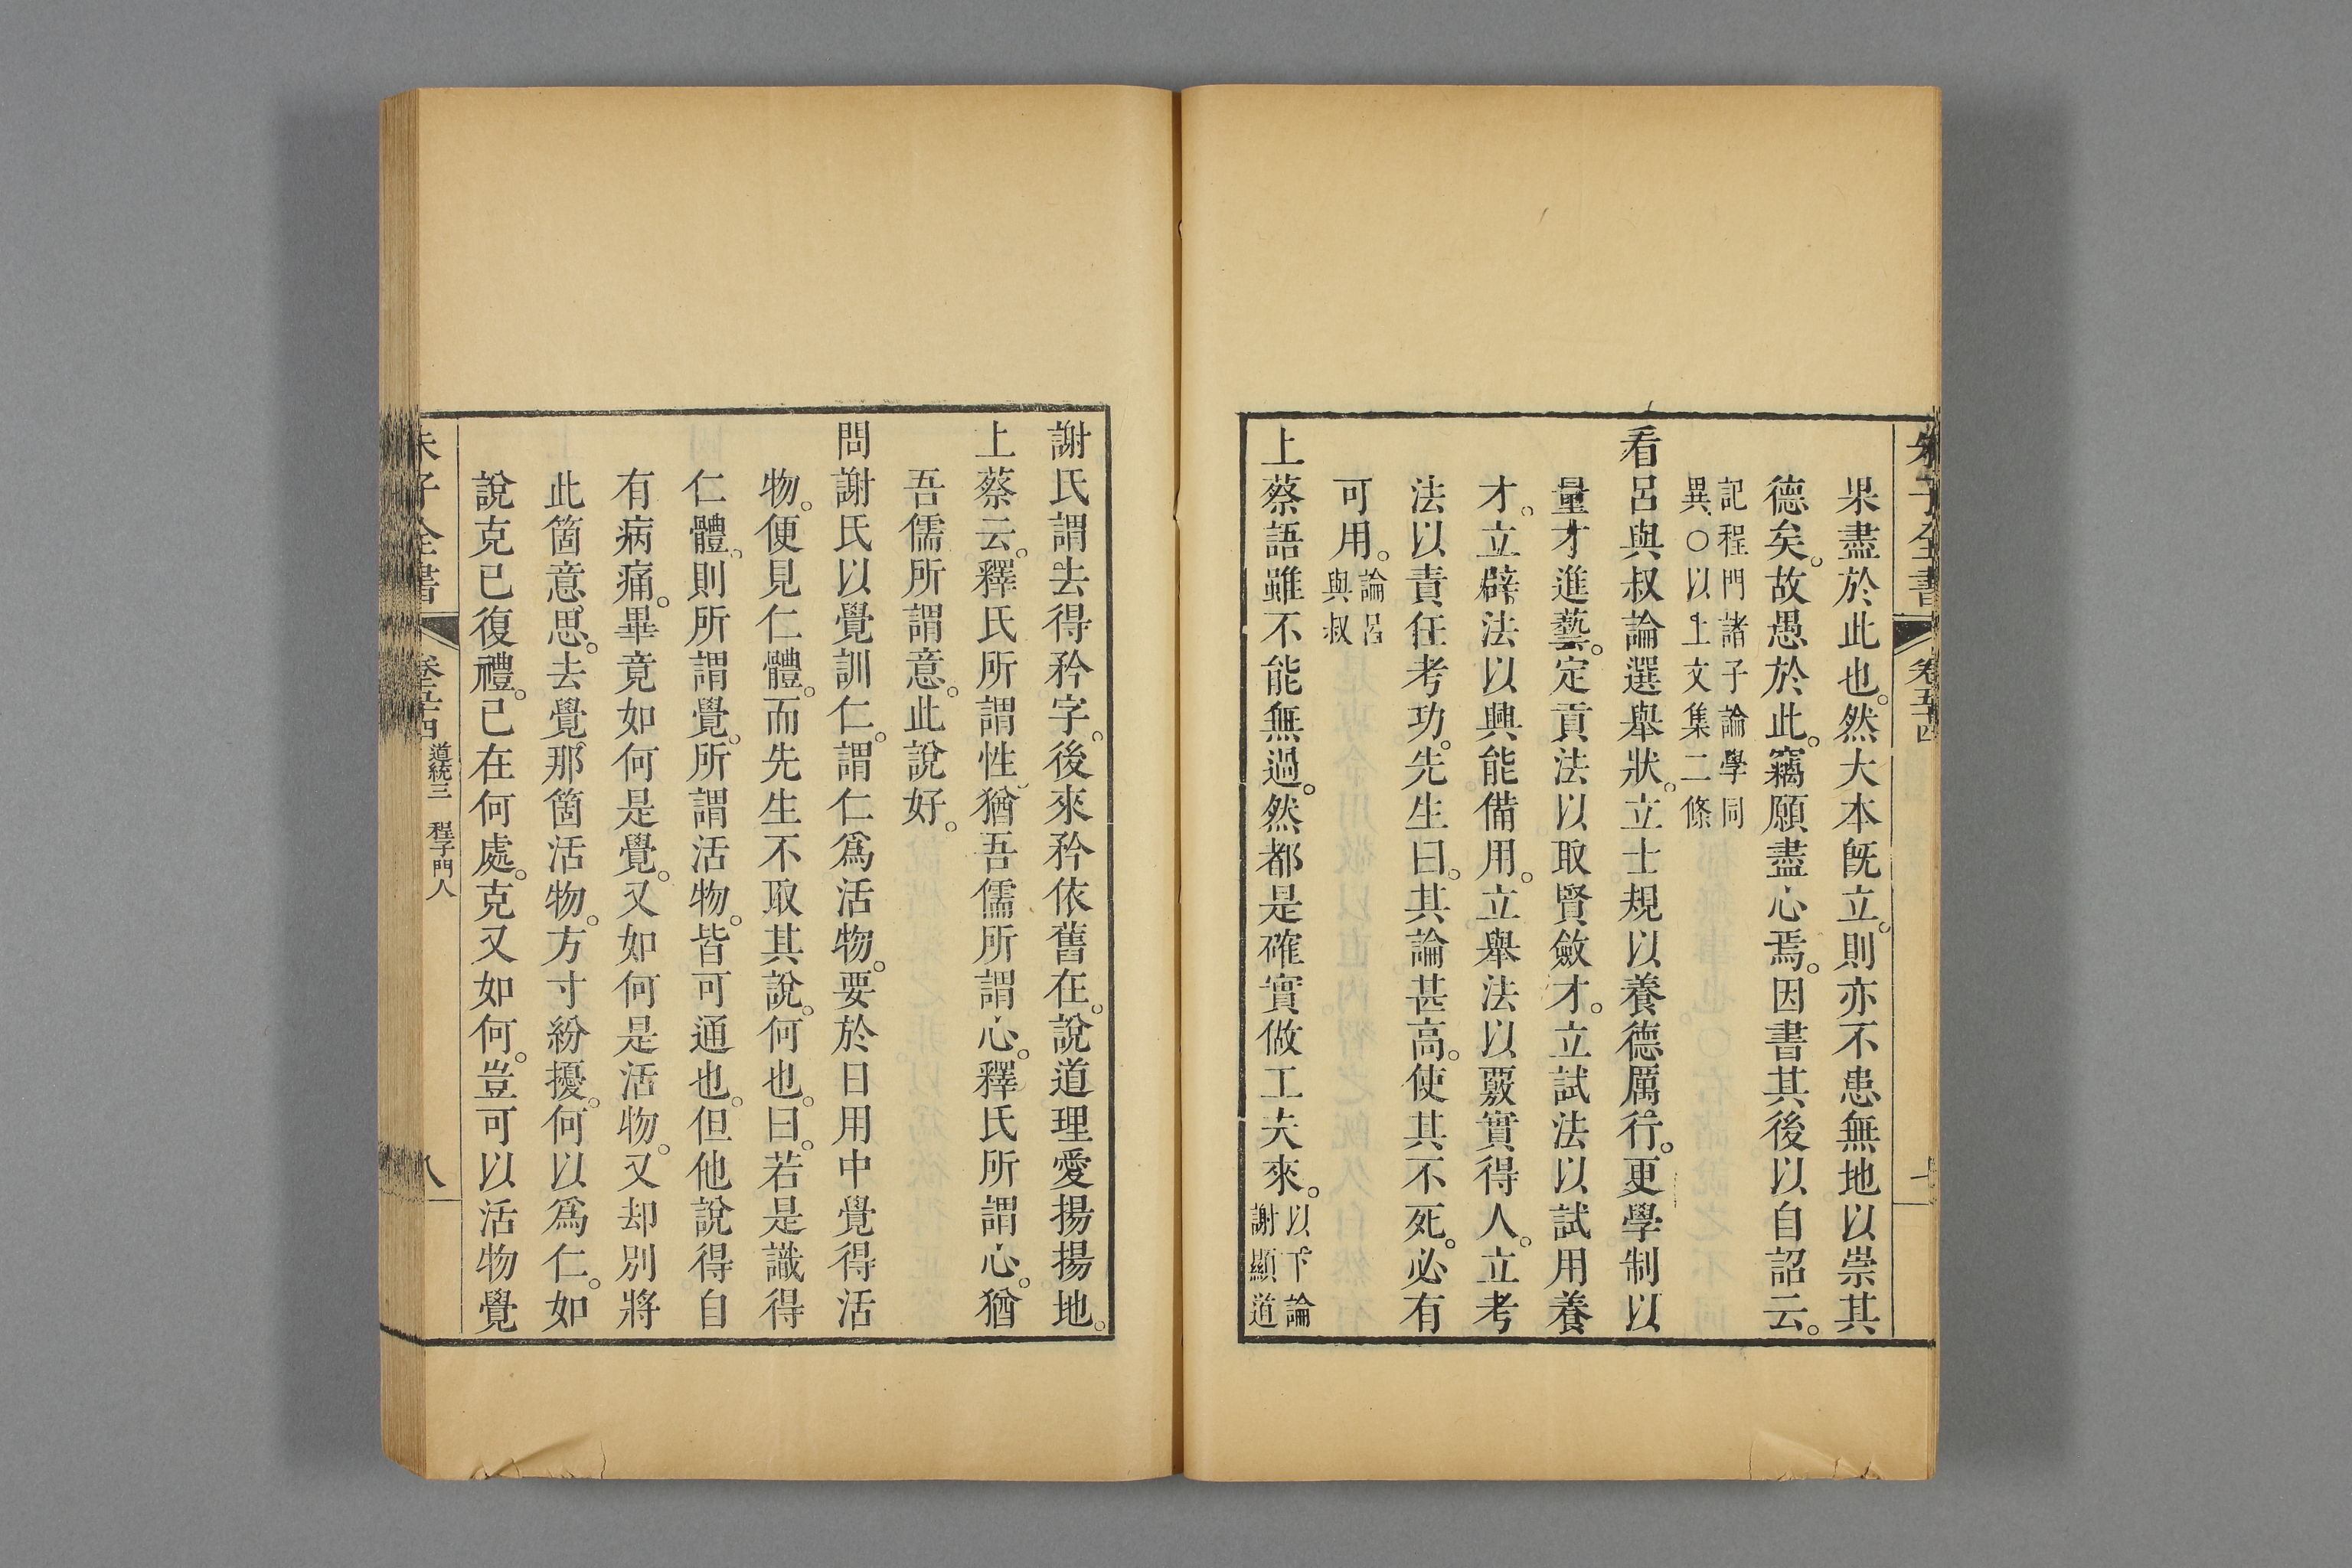 朱子全書 卷五十四 七
果盡於此也。然大本旣立。則亦不患無地以崇其
德矣。故愚於此。竊願盡心焉。因書其後以自詔云。
記程門諸子論學同
異○以上文集二條
看呂與叔論選舉狀。立士規以養德厲行。更學制以
量才進藝。定貢法以取賢斂才。立試法以試用養
才。立辟法以興能備用。立舉法以覈實得人。立考
法以責任考功。先生曰。其論甚高。使其不死。必有
可用。論呂
與叔
上蔡語雖不能無過。然都是確實做工夫來。以下論
謝顯道
謝氏謂去得矜字。後來矜依舊在。說道理愛揚揚地。
上蔡云。釋氏所謂性。猶吾儒所謂心。釋氏所謂心。猶
吾儒所謂意。此說好。
問謝氏以覺訓仁。謂仁爲活物。要於日用中覺得活
物。便見仁體。而先生不取其說。何也。曰。若是識得
仁體。則所謂覺。所謂活物。皆可通也。但他說得自
有病痛。畢竟如何是覺。又如何是活物。又却別將
此箇意思。去覺那箇活物。方寸紛擾。何以爲仁。如
說克己復禮。己在何處。克又如何。豈可以活物覺
朱子全書 卷五十四 道統三 程子門人 八